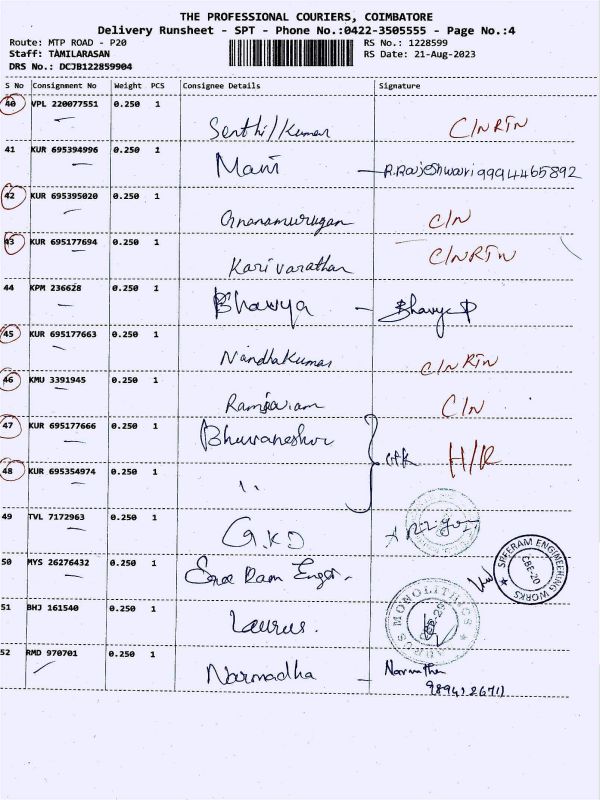 THE PROFESSIONAL COURIERS, COIMBATORE
Delivery Runsheet - SPT - Phone No.:0422-3505555 - Page No.:4
Route: MTP ROAD - P20 RS No.: 1228599
Staff: TAMILARASAN RS Date: 21-Aug-2023
DRS No.: DCJB122859904
S No Consignment No Weight PCS Consignee Details Signature
40 VPL 220077551 0.250 1
Senthil Kumar C/N RTN
41 KUR 695394996 0.250 1
Mani - R.Rajeshwari 9994465892
42 KUR 695395020 0.250 1
Gnanamurugan C/N
43 KUR 695177694 0.250 1
Karivarathan C/N RTN
44 KPM 236628 0.250 1
Bhavya - Bhavya P
45 KUR 695177663 0.250 1
Nandhakumar C/N RTN
46 KMU 3391945 0.250 1
C/N
47 KUR 695177666 0.250 1
Bhuvaneshvr H/R
48 KUR 695354974 0.250 1
"
49 TVL 7172963 0.250 1
G.K.D
50 MYS 26276432 0.250 1
Sree Ram Engg. SREERAM ENGINEERING WORKS CBE-20
51 BHJ 161540 0.250 1
Laurus. MONOLITHICS CBE-29
52 RMD 970701 0.250 1
Narmadha -